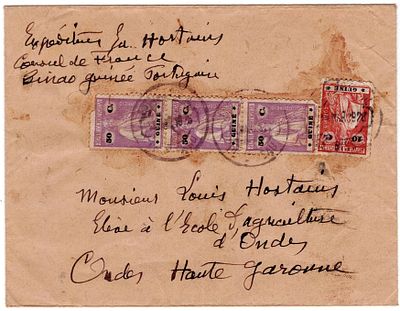 Expéditeur Ga. Hostains
Consul de France
Bissao Guinée Portugaise
50 C. GUINÉ
50 C. GUINÉ
50 C. GUINÉ
10 C. GUINÉ
Monsieur Louis Hostains
Elève à l'Ecole d'agriculture
d'Ondes
Ondes Haute Garonne